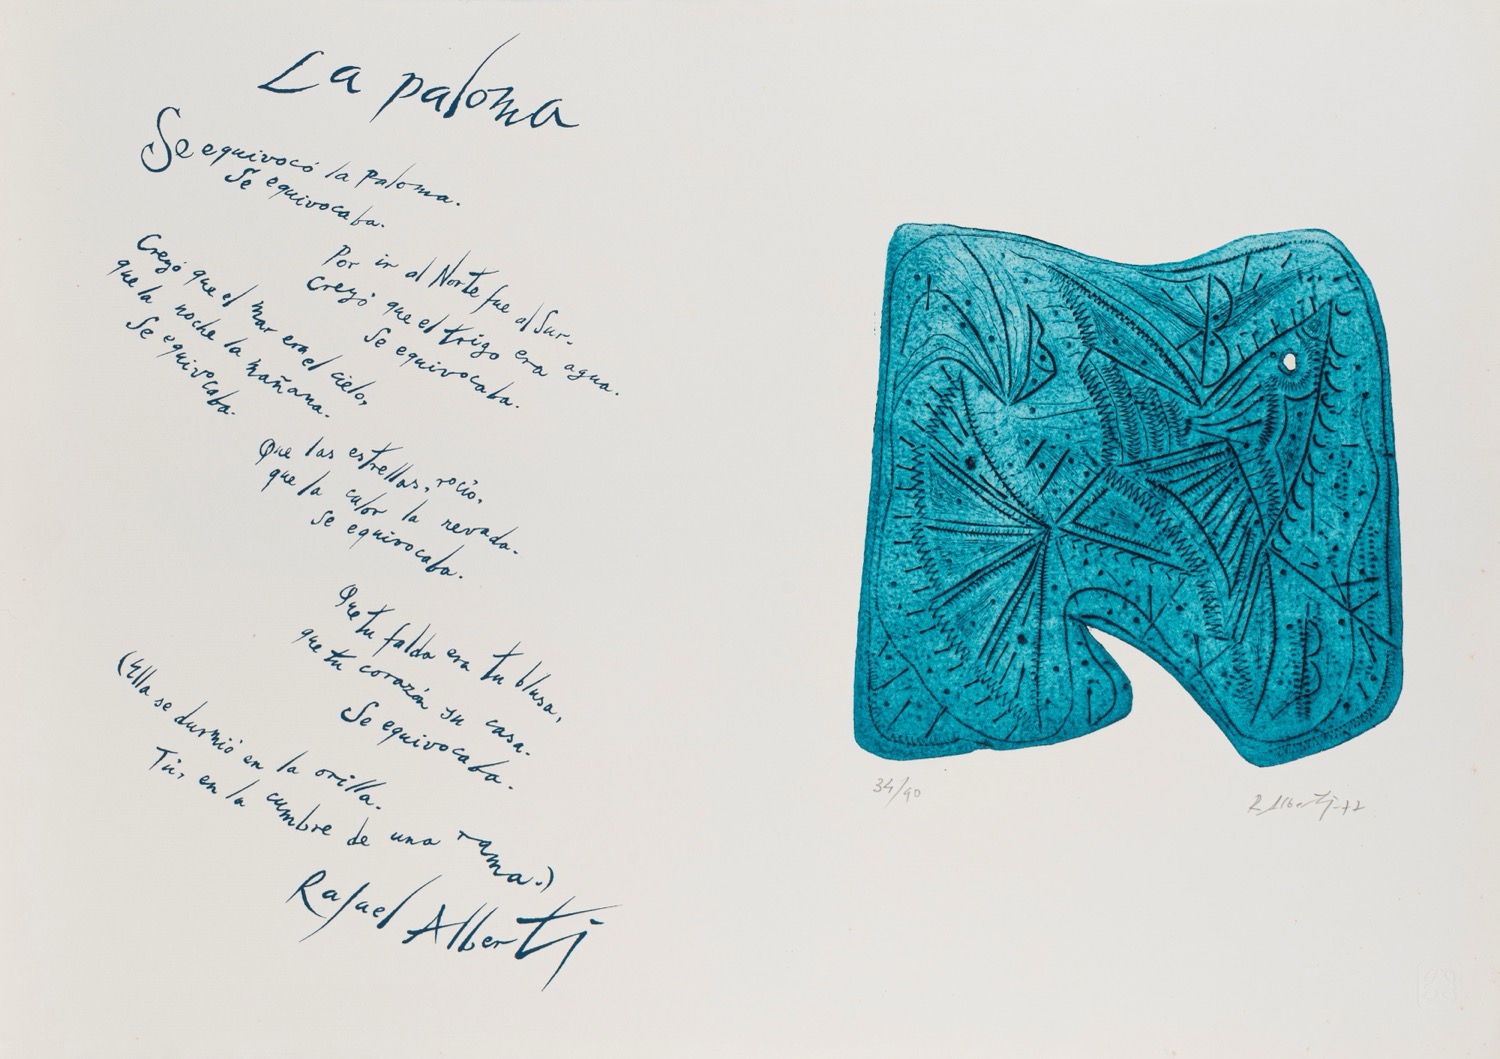 La paloma
Se equivocó la paloma.
Se equivocaba.
Por ir al Norte fue al Sur.
Creyó que el trigo era agua.
Se equivocaba.
Creyó que el mar era el cielo,
que la noche la mañana.
Se equivocaba.
Que las estrellas, rocío,
que la calor la nevada.
Se equivocaba.
Que tu falda era tu blusa,
que tu corazón su casa.
Se equivocaba.
(Ella se durmió en la orilla.
Tú, en la cumbre de una rama.)
Rafael Alberti
34/90
R. Alberti-72